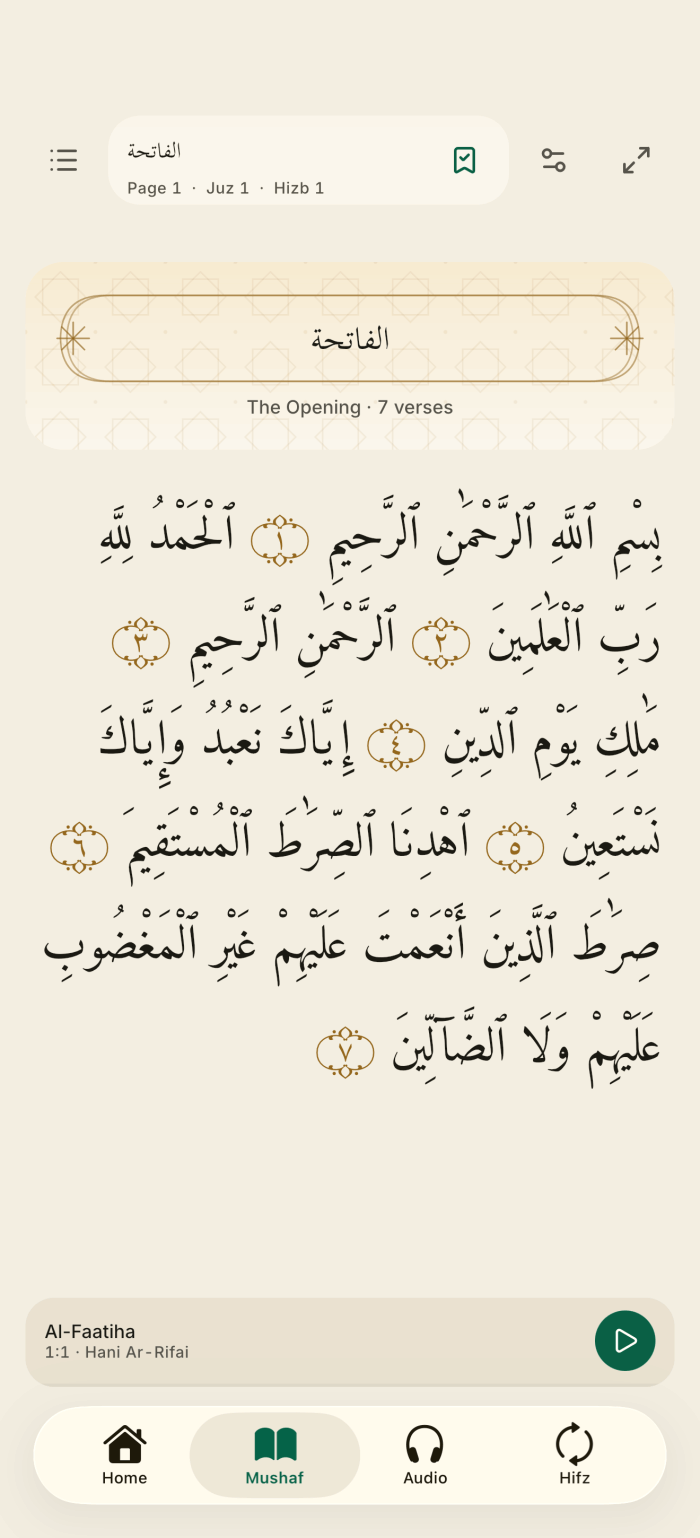 الفاتحة
Page 1 · Juz 1 · Hizb 1
الفاتحة
The Opening · 7 verses
بِسْمِ ٱللَّهِ ٱلرَّحْمَٰنِ ٱلرَّحِيمِ ١ ٱلْحَمْدُ لِلَّهِ
رَبِّ ٱلْعَٰلَمِينَ ٢ ٱلرَّحْمَٰنِ ٱلرَّحِيمِ ٣
مَٰلِكِ يَوْمِ ٱلدِّينِ ٤ إِيَّاكَ نَعْبُدُ وَإِيَّاكَ
نَسْتَعِينُ ٥ ٱهْدِنَا ٱلصِّرَٰطَ ٱلْمُسْتَقِيمَ ٦
صِرَٰطَ ٱلَّذِينَ أَنْعَمْتَ عَلَيْهِمْ غَيْرِ ٱلْمَغْضُوبِ
عَلَيْهِمْ وَلَا ٱلضَّآلِّينَ ٧
Al-Faatiha
1:1 · Hani Ar-Rifai
Home Mushaf Audio Hifz